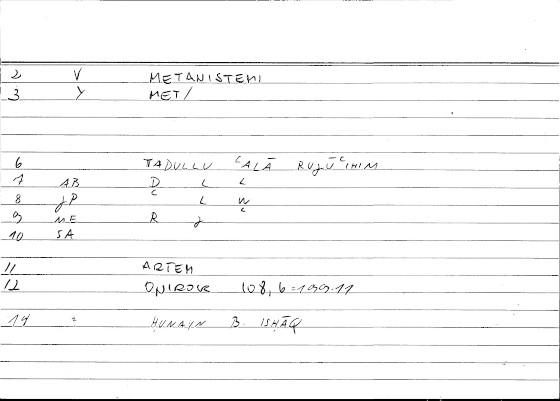 2 V METANISTEMI
3 Y MET/
6 TADULLU ʿALĀ RUJŪʿIHIM
7 AB D L L
8 JP ʿ L W
9 ME R J ʿ
10 SA
11 ARTEM
12 ONIROCR 108, 6=199.11
14 = ḤUNAYN B. ISḤĀQ